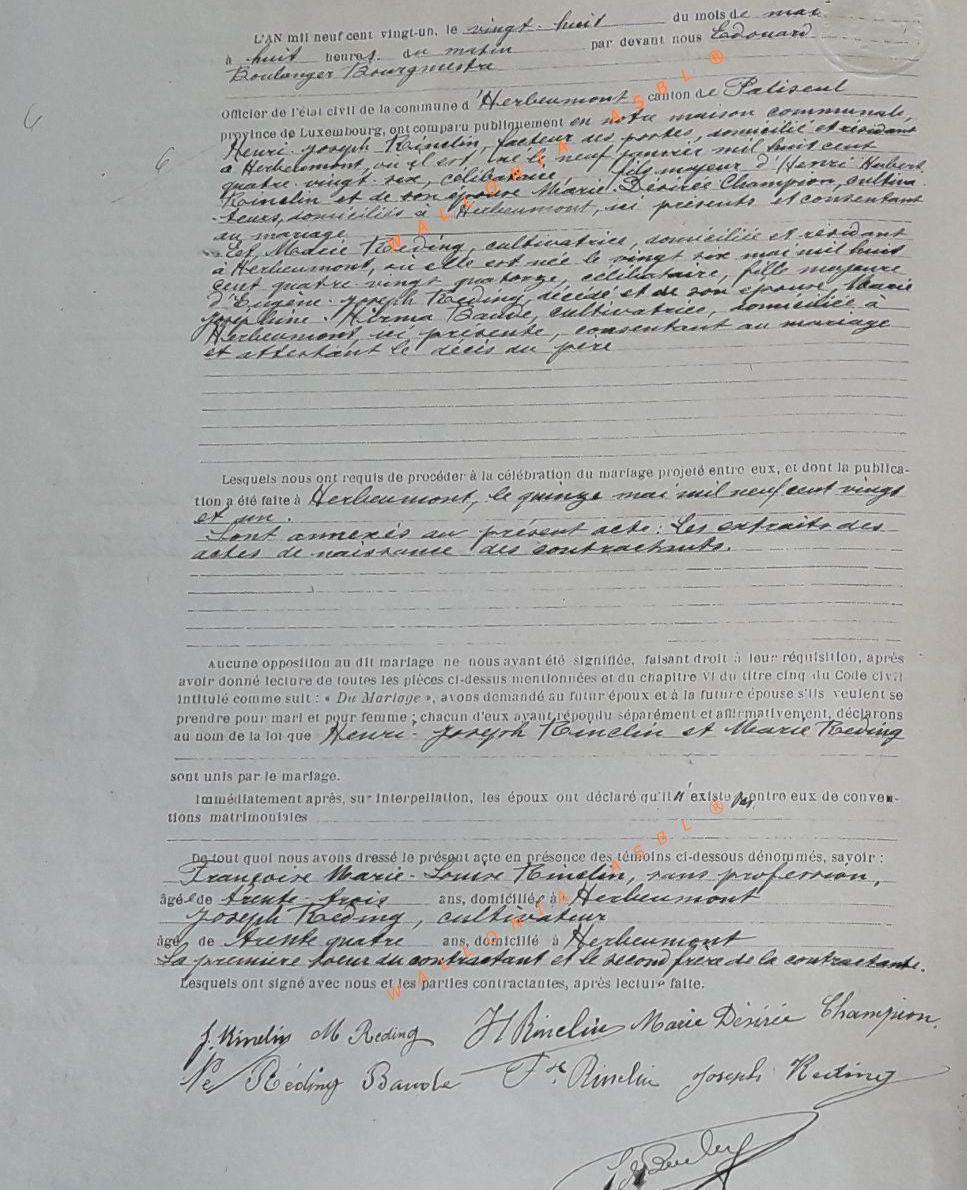 L'AN mil neuf cent vingt-un, le vingt-huit du mois de mai
à huit heures du matin par devant nous Edouard
Boulanger Bourgmestre
Officier de l'état civil de la commune d'Herbeumont canton de Paliseul
province de Luxembourg, ont comparu publiquement en notre maison communale,
Henri-Joseph Rinclin, facteur des postes, domicilié et résidant
à Herbeumont, où il est né le neuf janvier mil huit cent
quatre-vingt-six, célibataire, fils majeur d'Henri Hubert
Rinclin et de son épouse Marie-Désirée Champion, cultiva-
teurs, domiciliés à Herbeumont, ici présents et consentant
au mariage
Et, Marie Reding, cultivatrice, domiciliée et résidant
à Herbeumont, où elle est née le vingt six mai mil huit
cent quatre-vingt quatorze, célibataire, fille majeure
d'Eugène-Joseph Reding, décédé et de son épouse Marie
Joséphine Baude, cultivatrice, domiciliée à
Herbeumont, ici présente, consentant au mariage
et attestant le décès du père
Lesquels nous ont requis de procéder à la célébration du mariage projeté entre eux, et dont la publica-
tion a été faite à Herbeumont, le quinze mai mil neuf cent vingt
et un.
Sont annexés au présent acte: Les extraits des
actes de naissance des contractants.
Aucune opposition au dit mariage ne nous ayant été signifiée, faisant droit à leur réquisition, après
avoir donné lecture de toutes les pièces ci-dessus mentionnées et du chapitre VI du titre cinq du Code civil
intitulé comme suit : « Du Mariage », avons demandé au futur époux et à la future épouse s'ils veulent se
prendre pour mari et pour femme ; chacun d'eux ayant répondu séparément et affirmativement, déclarons
au nom de la loi que Henri-Joseph Rinclin et Marie Reding
sont unis par le mariage.
Immédiatement après, sur interpellation, les époux ont déclaré qu'il n'existe pas entre eux de conven-
tions matrimoniales
De tout quoi nous avons dressé le présent acte en présence des témoins ci-dessous dénommés, savoir :
Françoise Marie-Louise Rinclin, sans profession,
âgée de trente-trois ans, domiciliée à Herbeumont
Joseph Reding, cultivateur
âgé de trente quatre ans, domicilié à Herbeumont
La première soeur du contractant et le second frère de la contractante.
Lesquels ont signé avec nous et les parties contractantes, après lecture faite.
J. Rinclin M Reding H Rinclin Marie Désirée Champion.
Ve Réding Baude Fse Rinclin Joseph Reding
WALLONIA ASBL ®
WALLONIA ASBL ®
6
6